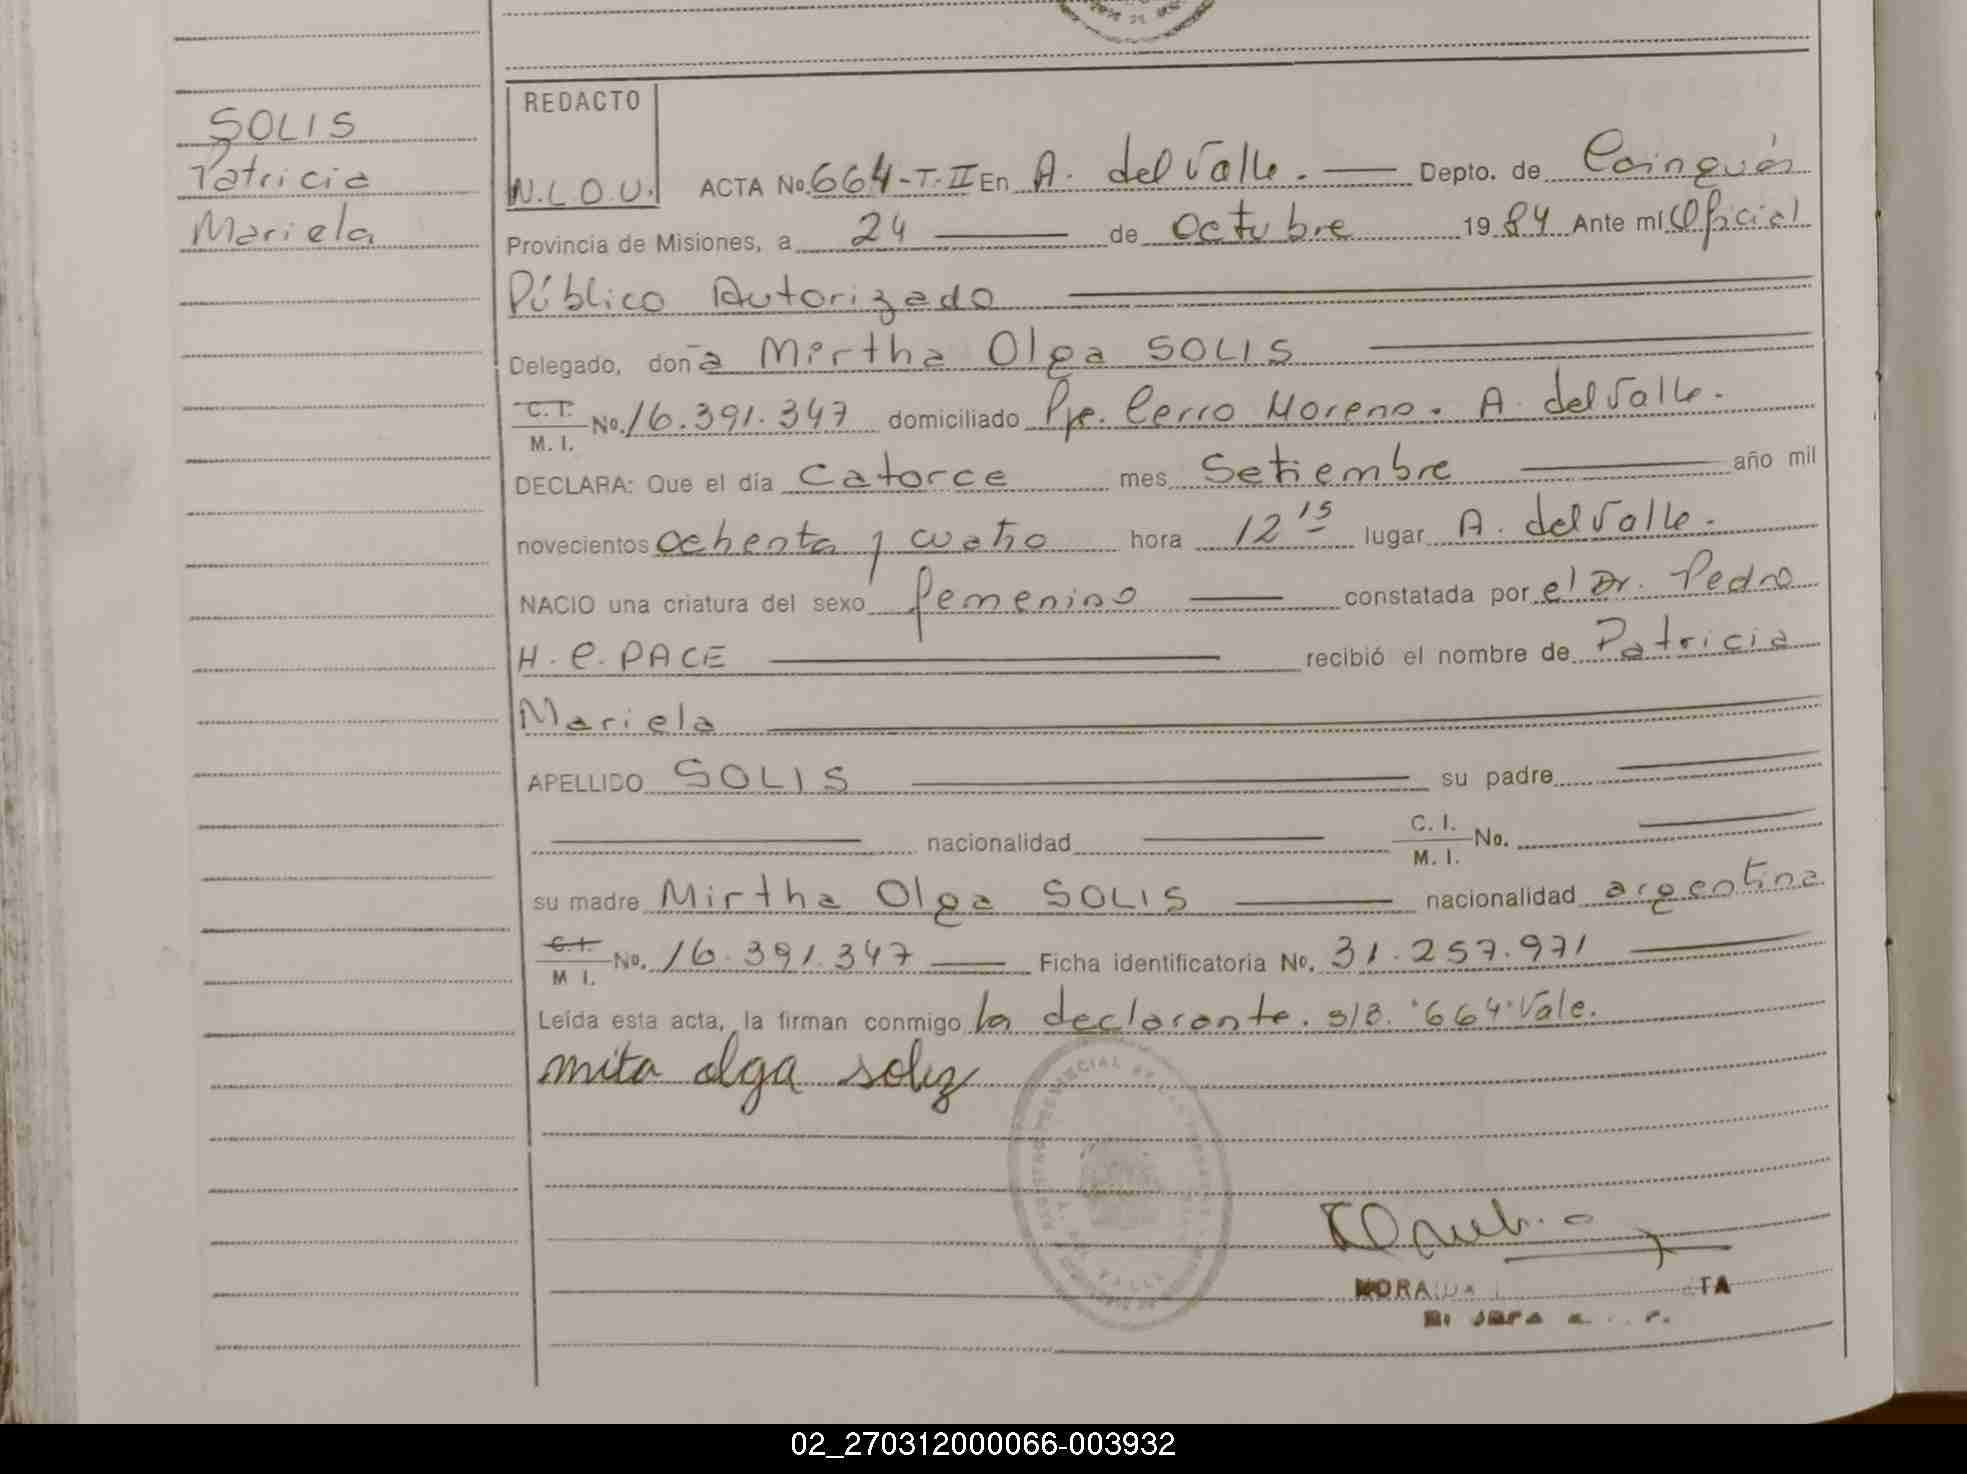 SOLIS
Patricia
Mariela
REDACTO
N.L.O.U.
ACTA No. 664-T-II En A. del Valle. Depto. de Cainguás
Provincia de Misiones, a 24 de Octubre 1984 Ante mí Oficial
Público Autorizado
Delegado, doña Mirtha Olga SOLIS
C.I. M.I. No. 16.391.347 domiciliado Pje. Cerro Moreno. A. del Valle.
DECLARA: Que el día Catorce mes Setiembre año mil
novecientos ochenta y cuatro hora 12 15 lugar A. del Valle.
NACIO una criatura del sexo femenino constatada por el Dr. Pedro
H. C. PACE recibió el nombre de Patricia
Mariela
APELLIDO SOLIS su padre
nacionalidad C. I. M. I. No.
su madre Mirtha Olga SOLIS nacionalidad argentina
C.I. M I. No. 16.391.347 Ficha identificatoria No. 31.257.971
Leída esta acta, la firman conmigo la declarante. s/B. "664" Vale.
mita olga soliz
02_270312000066-003932